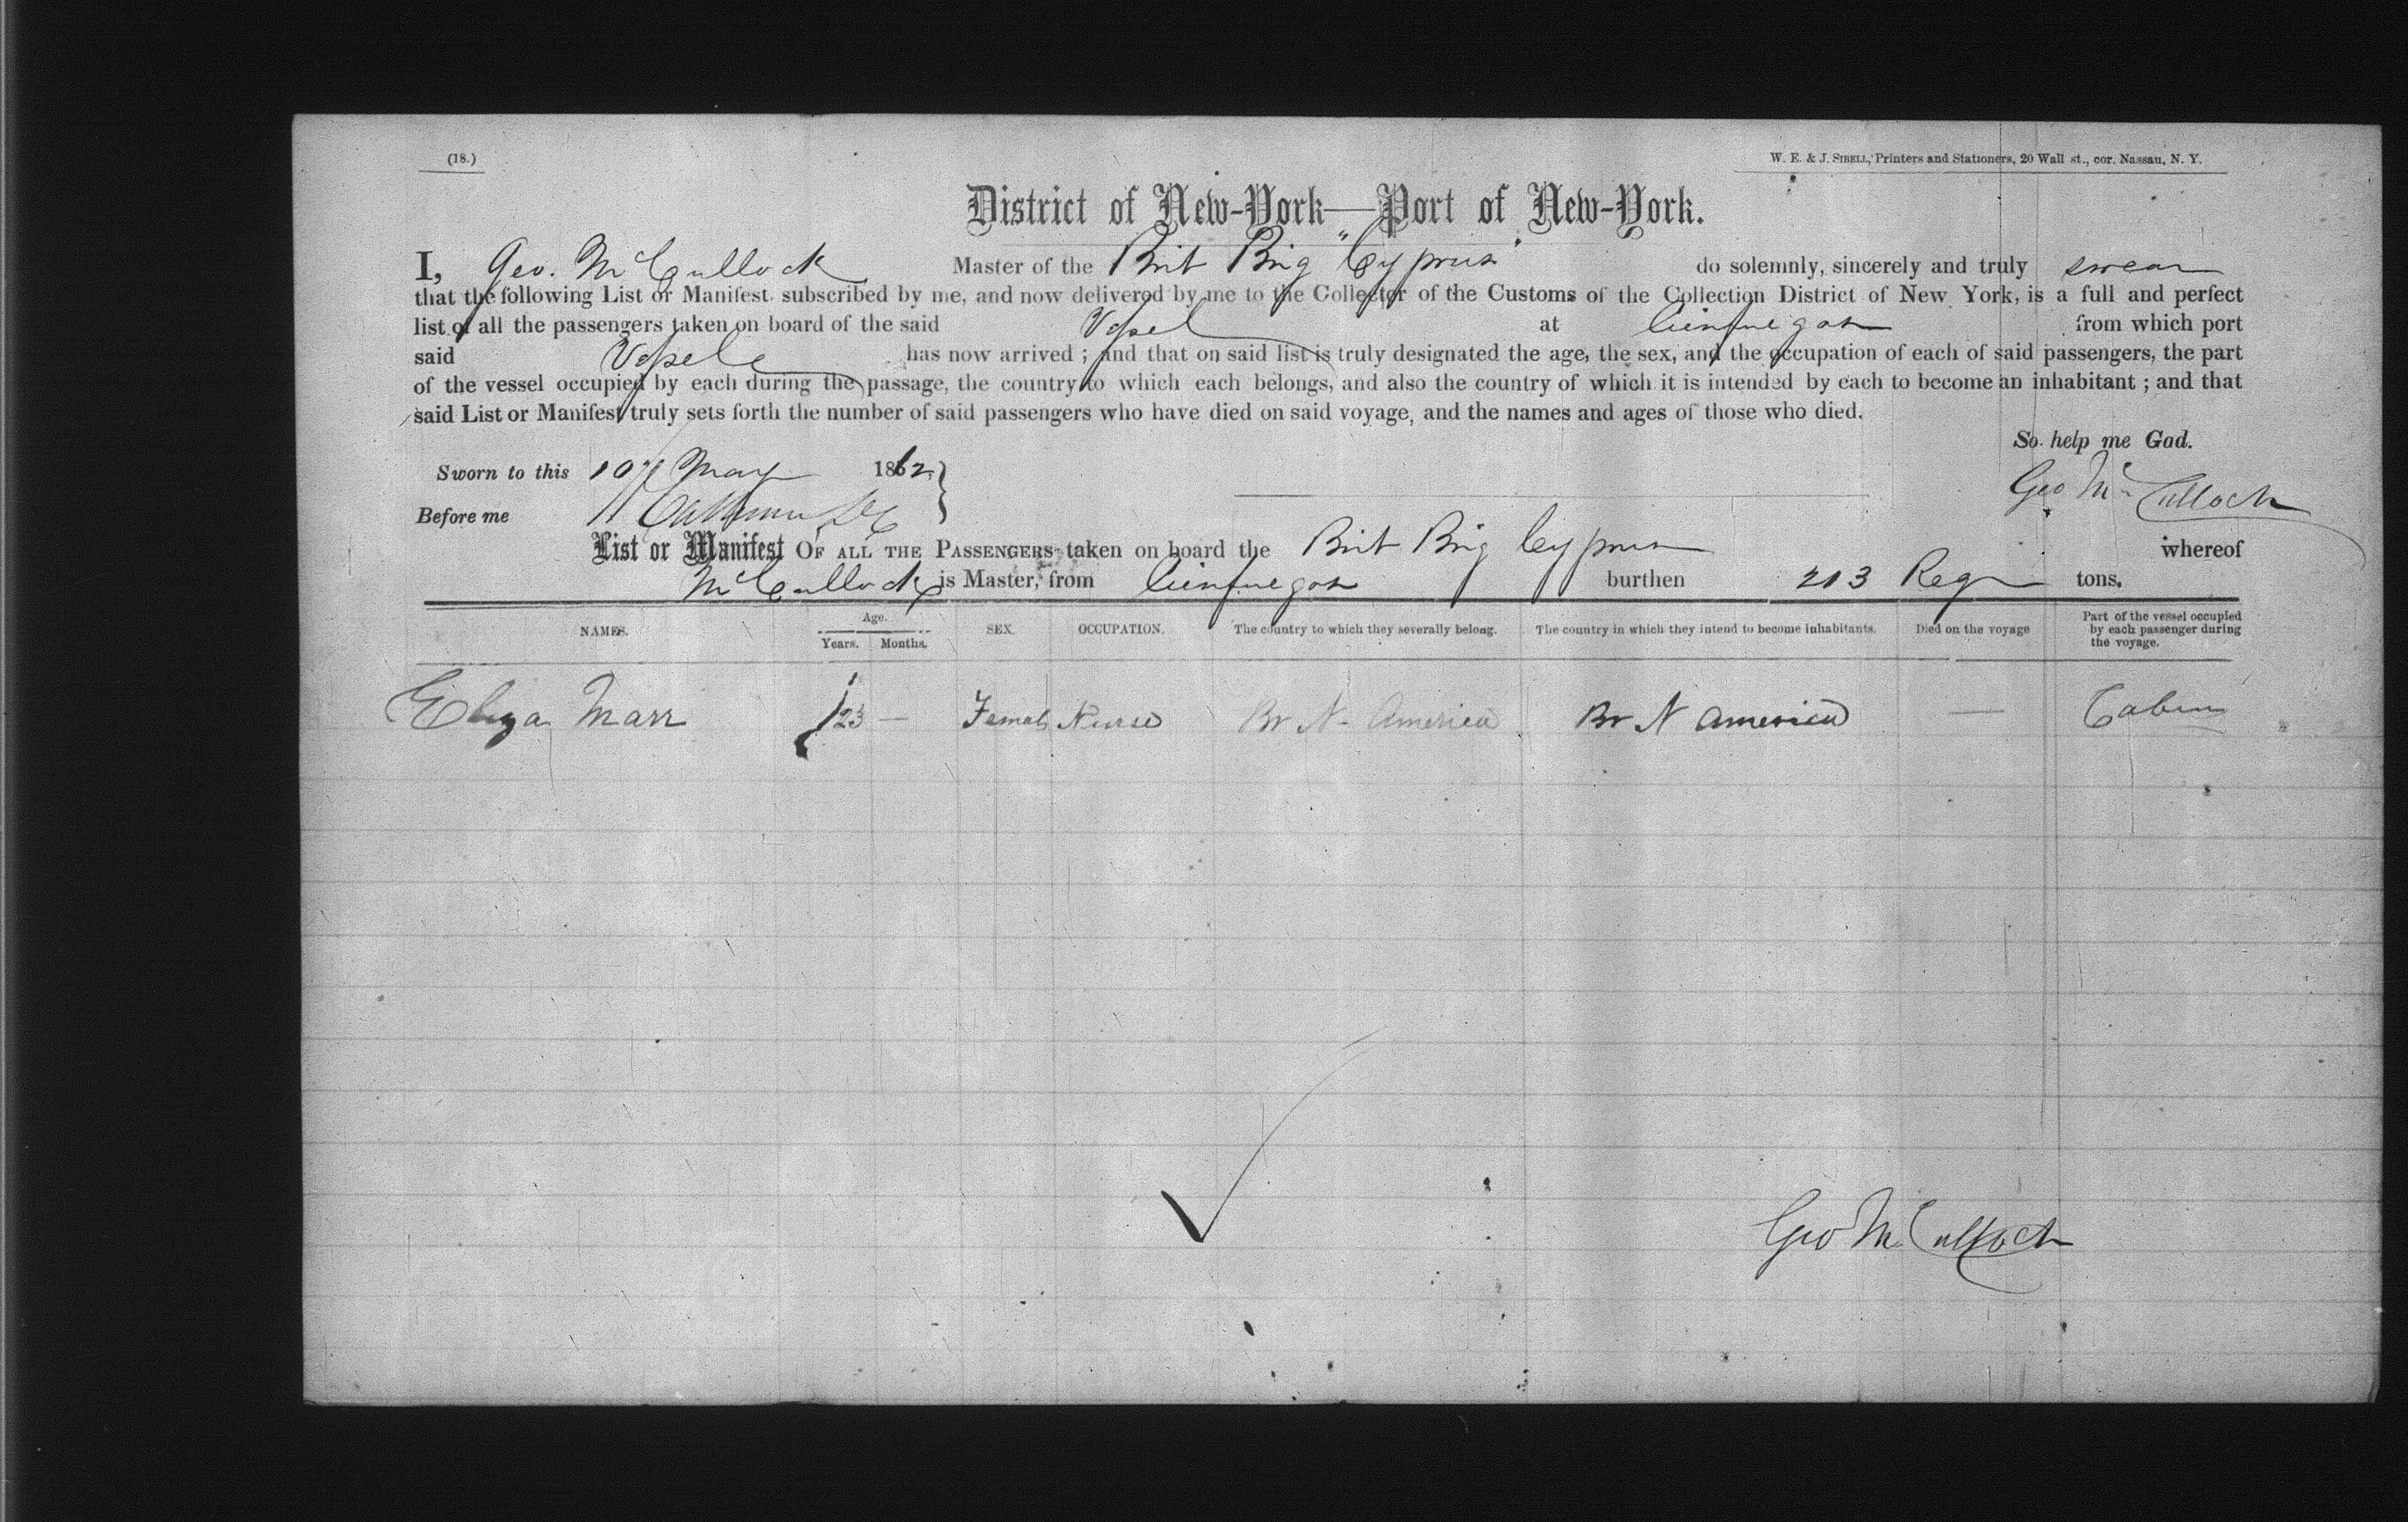 (18.)
W. E. & J. SIBELL, Printers and Stationers, 20 Wall st., cor. Nassau, N. Y.
District of New-York—Port of New-York.
I, Geo. McCullock Master of the Brit Brig "Cyprus" do solemnly, sincerely and truly swear
that the following List or Manifest. subscribed by me, and now delivered by me to the Collector of the Customs of the Collection District of New York, is a full and perfect
list of all the passengers taken on board of the said Vessel at Cienfuegos from which port
said Vessel has now arrived ; and that on said list is truly designated the age, the sex, and the occupation of each of said passengers, the part
of the vessel occupied by each during the passage, the country to which each belongs, and also the country of which it is intended by each to become an inhabitant ; and that
said List or Manifest truly sets forth the number of said passengers who have died on said voyage, and the names and ages of those who died.
So help me God.
Sworn to this 10 May 1862
Geo McCulloch
Before me
List or Manifest OF ALL THE PASSENGERS taken on board the Brit Brig Cyprus whereof
McCullock is Master, from Cienfuegos burthen 213 Reg tons.
NAMES. Age. Years. Months. SEX. OCCUPATION. The country to which they severally belong. The country in which they intend to become inhabitants. Died on the voyage Part of the vessel occupied by each passenger during the voyage.
Eliza Marr 23 — Female Nurse Br N. America Br N America — Cabin
Geo McCulloch